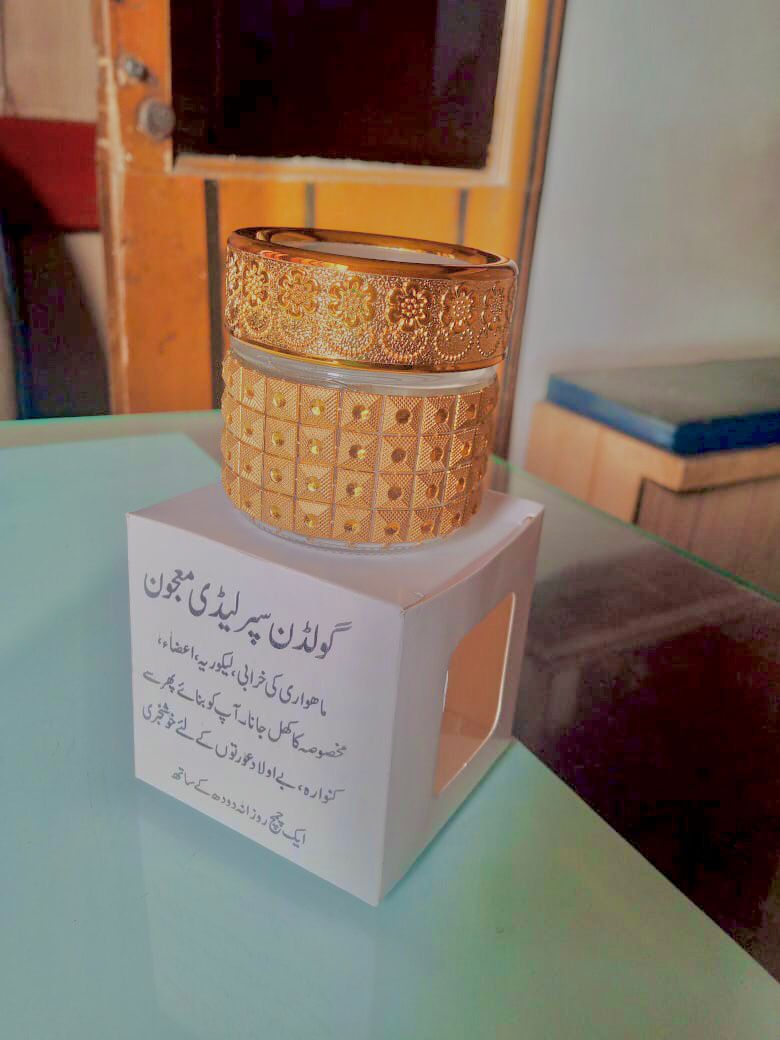 گولڈن سپر لیڈی معجون
ماهواری کی خرابی، لیکوریہ، اعضاٰء،
مخصوصہ کا کھل جانا۔ آپ کو بنائے پھر سے
کنوارہ، بے اولاد عورتوں کے لئے خوشخبری
ایک چمچ روزانہ دودھ کے ساتھ